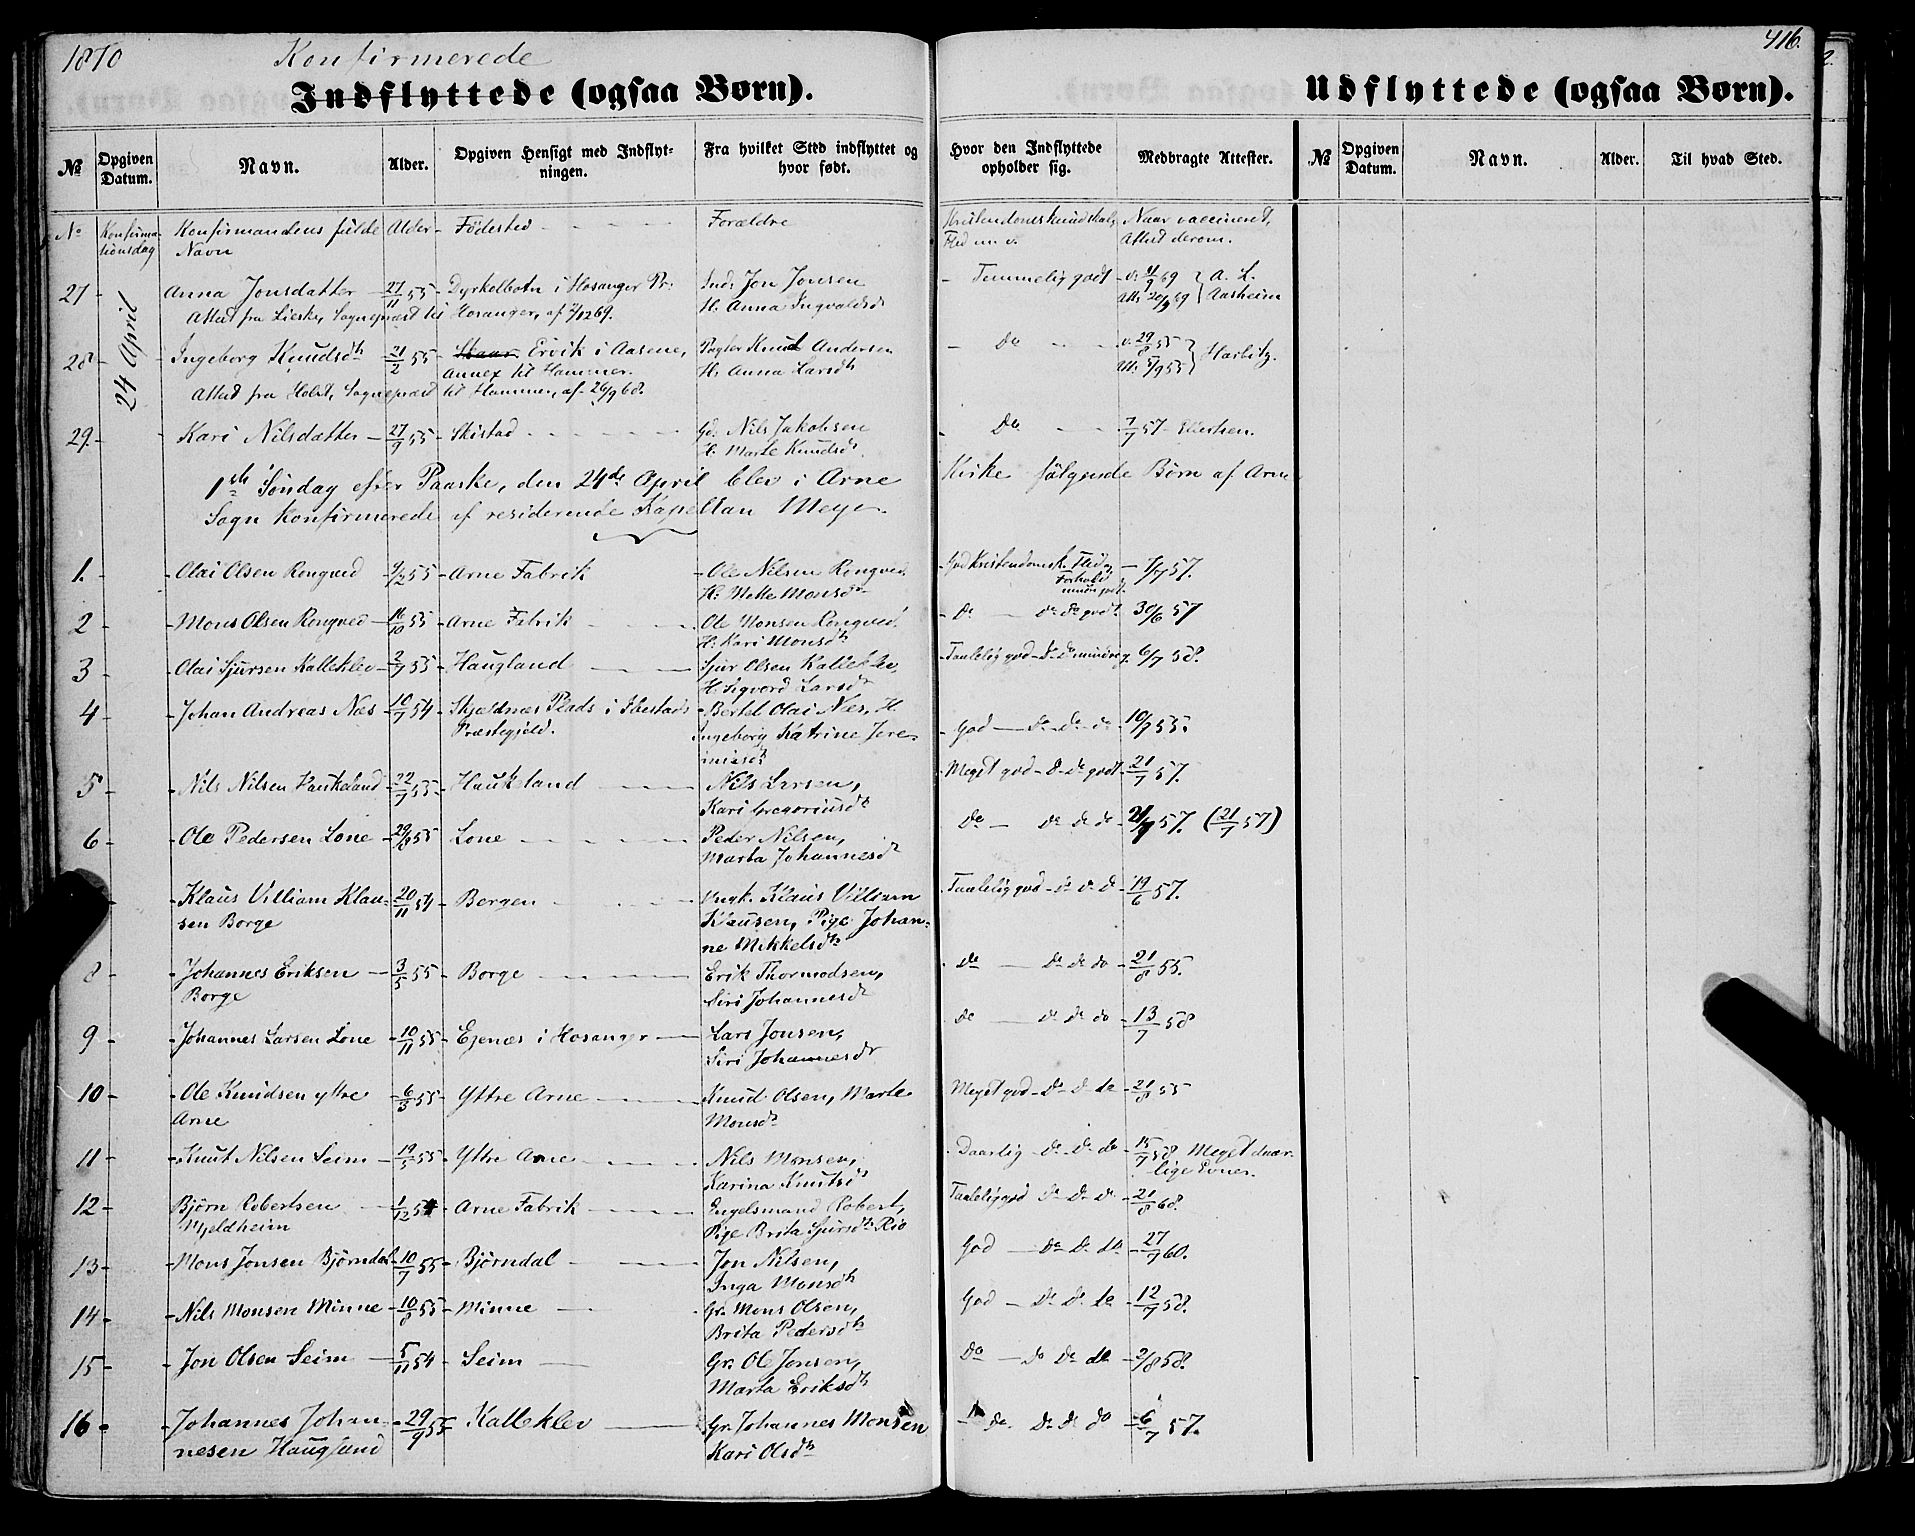 1870 Konfirmerede 416.
Indflyttede (ogsaa Børn). Udflyttede (ogsaa Børn).
№ Opgiven Datum. Navn. Alder. Opgiven Hensigt med Indflytningen. Fra hvilket Sted indflyttet og hvor født. Hvor den Indflyttede opholder sig. Medbragte Attester. № Opgiven Datum. Navn. Alder. Til hvad Sted.
No Konfirmationsdag Konfirmandens fulde Navn Alder Födested Forældre Kristendomskundskab, Flid m. v. Naar vaccineret, Attest derom.
24 April
27 - Anna Jonsdatter 27/11 55 - Dyrkelbotn i Hosanger Pr: Inds Jon Jonsen - Temmelig godt - v. 11/9 69 A. L.
Attest fra Lierke, Sognepræst til Hosanger, af 7/12 69. H. Anna Ingvaldsd. Att. 20/9 69 Aasheim
28 - Ingeborg Knudsdtr 21/2 55 - Skaar Ervik i Aasene, Pogter Knud Andersen - Do - v. 29/8 55 Harbitz.
Annex til Hammer. H. Anna Larsdtr Att. 5/9 55
Attest fra Holst, Sognepræst til Hammer, af 26/9 68.
29. - Kari Nilsdatter - 27/9 55 - Skistad Gd. Nils Jakobsen - Do - 7/7 57 - Ellertsen.
H. Marte Knudsdr.
1ste Söndag efter Paaske, den 24de April blev i Arne Kirke fölgende Børn af Arne
Sogn Konfirmerede af residerende Kapellan Meyer.
1. - Olai Olsen Rongved 4/2 55 - Arne Fabrik - Ole Nilsen Rongved. God Kristendomsk. Flid og Forhold - 7/7 57.
H: Mette Monsdr
2 - Mons Olsen Rongved - 16/10 55 - Arne Fabrik - Ole Monsen Rongved. - do - do do godt. 30/6 57
H. Kari Monsdtr
3 - Olai Sjursen Kalleklev - 2/7 55 - Haugland - Sjur Olsen Kalleklev, - Taalelig god - do do 6/7 58.
H. Sigvord Larsdr
4 - Johan Andreas Næs - 16/7 54 - Skjeldnæs Plads i Ibestads - Bertel Olai Næs, H - God - do do do 10/7 55.
Præstegjeld. Ingeborg Katrine Jere-
miasdr
5 - Nils Nilsen Haukeland - 22/7 55 - Haukeland Nils Larsen, - Meget god - do do godt - 21/7 57.
Kari Gregoriusdr
6 - Ole Pedersen Lone - 29/8 55 - Lone Peder Nilsen, do - do do do - 21/7 57. (21/7 57)
Marta Johannesdr
- Klaus Villiam Klau- - 20/11 54 - Bergen - Ungk. Klaus Villiam - Taalelig god - do do do - 19/6 57.
sen Borge Klausen, Pige Johan-
ne Mikkelsdtr
8 - Johannes Eriksen - 3/5 55 - Borge Erik Thormodsen, do - do do do - 21/8 55.
Borge Siri Johannesdr
9 - Johannes Larsen Lone - 10/11 55 - Ejenæs i Hosanger Lars Jonsen, do - do do do - 13/7 58
Siri Johannesdr
10 - Ole Knudsen yttre - 6/3 55 - Yttre Arne Knud Olsen, Marte Meget god - do do do - 21/8 55
Arne Monsdr
11 - Knut Nilsen Seim - 19/5 55 - Yttre Arne Nils Monsen, - Daarlig - do do do - 15/7 58 Meget daar-
Karina Knutsdr lige Evner.
12 - Björn Robertsen - 1/12 54 - Arne Fabrik Engelsmand Robert, Taalelig god do do do - 21/8 68.
Mjeldheim Pige Brita Sjursdtr Rio
13 - Mons Jonsen Björndal - 10/7 55 - Björndal Jon Nilsen, God - do do do - 27/7 60.
Inga Monsdtr
14 - Nils Monsen Minne - 10/8 55 - Minne Gr. Mons Olsen, God - do do do - 12/7 58.
Brita Pedersdtr
15 - Jon Olsen Seim - 5/11 54 - Seim Gr. Ole Jonsen, Do - do do do - 2/8 58.
Marta Eriksdtr
16 - Johannes Johan- - 29/9 55 - Kalleklev Gr. Johannes Monsen - do do do do - 6/7 57.
nesen Haugland Kari Olsdtr